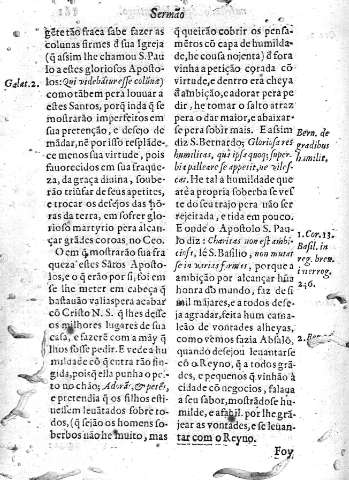 Sermão
gẽte tão fraca sabe fazer as
colunas firmes d̃ sua Igreja
(q̃ assim lhe chamou S. Pau
lo a estes gloriosos Aposto-
los: Qui videbãtur esse colũnæ)
Galat. 2.
como tãbem pera louuar a
estes Santos, porq̃ inda q̃ se
mostrarão imperfeitos em
sua pretenção, e desejo de
mãdar, nẽ por isso resplãde-
ce menos sua virtude, pois
fauorecidos em sua fraque-
za, da graça divina, soube-
rão triũfar de seus apetites,
e trocar os desejos das hõ-
ras da terra, em sofrer glo-
rioso martyrio pera alcan-
çar grãdes coroas, no Ceo.
O em q̃ mostrarão sua fra
queza estes Sãtos Aposto-
los, e o q̃ erão por si, foi em
se lhe meter em cabeça q̃
bastauão valias pera acabar
cõ Cristo N. S. q̃ lhes desse
os milhores lugares de sua
casa, e fazerẽ com a mãy q̃
lhos fosse pedir. E vede a hu
mildade cõ q̃ entra tão fin-
gida, pois q̃ ella punha o pei-
to no chão; Adorãs, & petẽs,
e pretendia q̃ os filhos esti-
uessem leuãtados sobre to-
dos, (q̃ sejão os homens so-
berbos não he muito, mas
q̃ queirão cobrir os pensa-
mẽtos cõ capa de humilda-
de, he cousa nojenta) d̃ fora
vinha a petição corada cõ
virtude, e dentro era cheya
d̃ ambição, e adorar pera pe
dir, he tomar o salto atraz
pera o dar maior, e abaixar-
se pera sobir mais. E assim
diz S. Bernardo; Gloriosa res
humilitas, qua ipsa quoq; super-
bia palleare se appetit, ne viles-
cat. He tal a humildade que
até a propria soberba se ves
te do seu trajo pera não ser
rejeitada, e tida em pouco.
Bern. de
gradibus
humilit.
E onde o Apostolo S. Pau-
lo diz: Charitas non est ambi-
tiosa, lé S. Basilio, non mutat
se in varias formas, porque a
ambição por alcançar hũa
honra do mundo, faz de si
mil majares, e a todos dese-
ja agradar, feita hum cama-
leão de vontades alheyas,
como vemos fazia Absalõ,
quando desejou leuantarse
cõ o Reyno, q̃ a todos grã-
des, e pequenos q̃ vinhão à
cidade cõ negocios, falaua
a seu sabor, mostrãdose hu-
milde, e afabil. por lhe grã-
jear as vontades, e se leuan-
tar com o Reyno.
1. Cor. 13.
Basil. in
reg. breu.
interrog.
2. Reg.
Foy